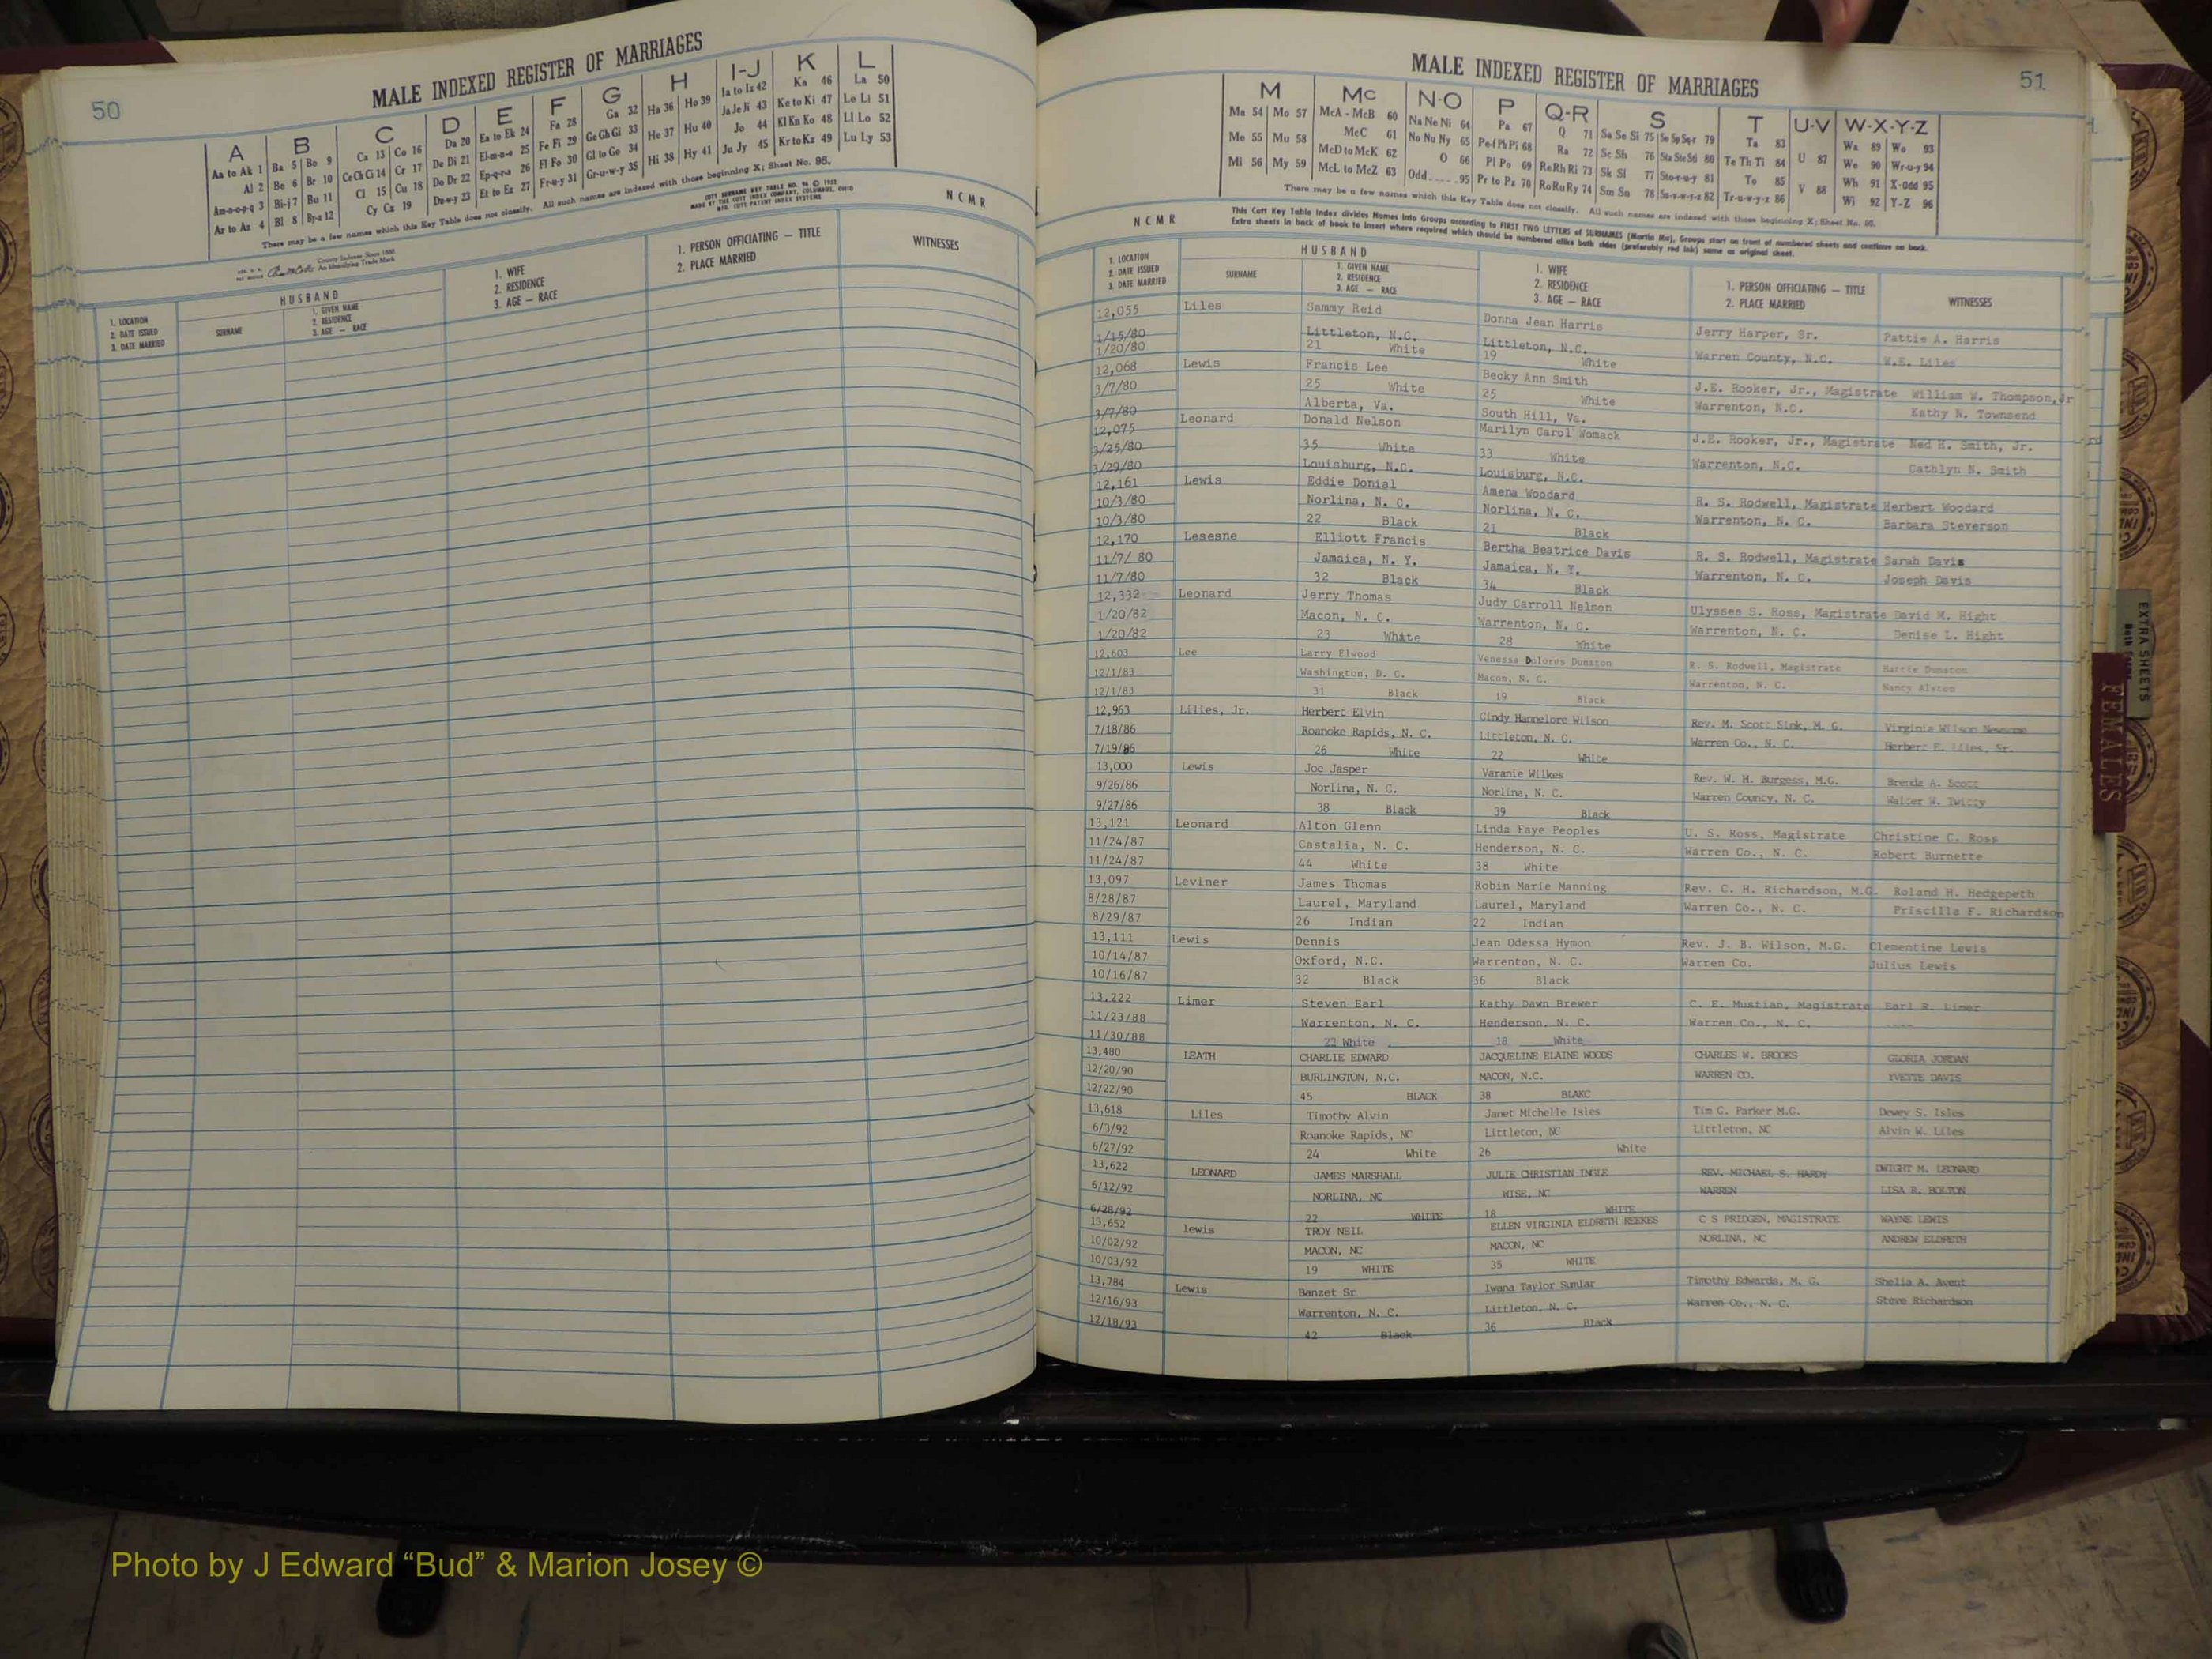 50
MALE INDEXED REGISTER OF MARRIAGES
A B C D E F G H I-J K L
Aa to Ak 1 Ba 5 Bo 9 Ca 13 Co 16 Da 20 Ea to Ek 24 Fa 28 Ga 32 Ha 36 Ho 39 Ia to Iz 42 Ka 46 La 50
Al 2 Be 6 Br 10 Ce Ch Ci 14 Cr 17 De Di 21 El-m-n-o 25 Fe Fi 29 Ge Gh Gi 33 He 37 Hu 40 Ja Je Ji 43 Ke to Ki 47 Le Li 51
Am-n-o-p-q 3 Bi-j 7 Bu 11 Cl 15 Cu 18 Do Dr 22 Ep-q-r-s 26 Fl Fo 30 Gl to Go 34 Hi 38 Hy 41 Jo 44 Kl Kn Ko 48 Ll Lo 52
Ar to Az 4 Bl 8 By-z 12 Cy Cz 19 Du-w-y 23 Et to Ez 27 Fr-u-y 31 Gr-u-w-y 35 Ju Jy 45 Kr to Kz 49 Lu Ly 53
There may be a few names which this Key Table does not classify. All such names are indexed with those beginning X; Sheet No. 95.
COTT SURNAME KEY TABLE NO. 96 © 1952
MADE BY THE COTT INDEX COMPANY, COLUMBUS, OHIO
MFG. COTT PATENT INDEX SYSTEMS
N C M R
County Indexes Since 1888
An Identifying Trade Mark
1. LOCATION
2. DATE ISSUED
3. DATE MARRIED
HUSBAND
SURNAME
1. GIVEN NAME
2. RESIDENCE
3. AGE — RACE
1. WIFE
2. RESIDENCE
3. AGE — RACE
1. PERSON OFFICIATING — TITLE
2. PLACE MARRIED
WITNESSES
MALE INDEXED REGISTER OF MARRIAGES
51
M Mc N-O P Q-R S T U-V W-X-Y-Z
Ma 54 Mo 57 McA - McB 60 Na Ne Ni 64 Pa 67 Q 71 Sa Se Si 75 So Sp Sq-r 79 Ta 83 Wa 89 Wo 93
Me 55 Mu 58 McC 61 No Nu Ny 65 Pe-f Ph Pi 68 Ra 72 Sc Sh 76 Sta Ste Sti 80 Te Th Ti 84 U 87 We 90 Wr-u-y 94
Mi 56 My 59 McD to McK 62 O 66 Pl Po 69 Re Rh Ri 73 Sk Sl 77 Sto-r-u-y 81 To 85 Wh 91 X-Odd 95
McL to McZ 63 Odd 95 Pr to Pz 70 Ro Ru Ry 74 Sm Sn 78 Su-v-w-y-z 82 Tr-u-w-y-z 86 V 88 Wi 92 Y-Z 96
There may be a few names which this Key Table does not classify. All such names are indexed with those beginning X; Sheet No. 95.
N C M R
This Cott Key Table Index divides Names into Groups according to FIRST TWO LETTERS of SURNAMES (Martin Ma), Groups start on front of numbered sheets and continue on back.
Extra sheets in back of book to insert where required which should be numbered alike both sides (preferably red ink) same as original sheet.
1. LOCATION
2. DATE ISSUED
3. DATE MARRIED
HUSBAND
SURNAME
1. GIVEN NAME
2. RESIDENCE
3. AGE — RACE
1. WIFE
2. RESIDENCE
3. AGE — RACE
1. PERSON OFFICIATING — TITLE
2. PLACE MARRIED
WITNESSES
12,055 Liles Sammy Reid Donna Jean Harris Jerry Harper, Sr. Pattie A. Harris
1/15/80 Littleton, N.C. Littleton, N.C. Warren County, N.C. W.E. Liles
1/20/80 21 White 19 White
12,068 Lewis Francis Lee Becky Ann Smith J.E. Rooker, Jr., Magistrate William W. Thompson,Jr
3/7/80 25 White 25 White Warrenton, N.C. Kathy N. Townsend
3/7/80 Alberta, Va. South Hill, Va.
12,075 Leonard Donald Nelson Marilyn Carol Womack J.E. Rooker, Jr., Magistrate Ned H. Smith, Jr.
3/25/80 35 White 33 White Warrenton, N.C. Cathlyn N. Smith
3/29/80 Louisburg, N.C. Louisburg, N.C.
12,161 Lewis Eddie Donial Amena Woodard R. S. Rodwell, Magistrate Herbert Woodard
10/3/80 Norlina, N. C. Norlina, N. C. Warrenton, N. C. Barbara Steverson
10/3/80 22 Black 21 Black
12,170 Lesesne Elliott Francis Bertha Beatrice Davis R. S. Rodwell, Magistrate Sarah Davis
11/7/ 80 Jamaica, N. Y. Jamaica, N. Y. Warrenton, N. C. Joseph Davis
11/7/80 32 Black 34 Black
12,332 Leonard Jerry Thomas Judy Carroll Nelson Ulysses S. Ross, Magistrate David M. Hight
1/20/82 Macon, N. C. Warrenton, N. C. Warrenton, N. C. Denise L. Hight
1/20/82 23 White 28 White
12,603 Lee Larry Elwood Venessa Dolores Dunston R. S. Rodwell, Magistrate Hattie Dunston
12/1/83 Washington, D. C. Macon, N. C. Warrenton, N. C. Nancy Alston
12/1/83 31 Black 19 Black
12,963 Lilies, Jr. Herbert Elvin Cindy Hannelore Wilson Rev. M. Scott Sink, M. G. Virginia Wilson Newsome
7/18/86 Roanoke Rapids, N. C. Littleton, N. C. Warren Co., N. C. Herbert E. Liles, Sr.
7/19/86 26 White 22 White
13,000 Lewis Joe Jasper Varanie Wilkes Rev. W. H. Burgess, M.G. Brenda A. Scott
9/26/86 Norlina, N. C. Norlina, N. C. Warren County, N. C. Walter W. Twitty
9/27/86 38 Black 39 Black
13,121 Leonard Alton Glenn Linda Faye Peoples U. S. Ross, Magistrate Christine C. Ross
11/24/87 Castalia, N. C. Henderson, N. C. Warren Co., N. C. Robert Burnette
11/24/87 44 White 38 White
13,097 Leviner James Thomas Robin Marie Manning Rev. C. H. Richardson, M.G. Roland H. Hedgepeth
8/28/87 Laurel, Maryland Laurel, Maryland Warren Co., N. C. Priscilla F. Richardson
8/29/87 26 Indian 22 Indian
13,111 Lewis Dennis Jean Odessa Hymon Rev. J. B. Wilson, M.G. Clementine Lewis
10/14/87 Oxford, N.C. Warrenton, N. C. Warren Co. Julius Lewis
10/16/87 32 Black 36 Black
13,222 Limer Steven Earl Kathy Dawn Brewer C. E. Mustian, Magistrate Earl R. Limer
11/23/88 Warrenton, N. C. Henderson, N. C. Warren Co., N. C. ----
11/30/88 22 White 18 White
13,480 LEATH CHARLIE EDWARD JACQUELINE ELAINE WOODS CHARLES W. BROOKS GLORIA JORDAN
12/20/90 BURLINGTON, N.C. MACON, N.C. WARREN CO. YVETTE DAVIS
12/22/90 45 BLACK 38 BLAKC
13,618 Liles Timothy Alvin Janet Michelle Isles Tim G. Parker M.G. Dewey S. Isles
6/3/92 Roanoke Rapids, NC Littleton, NC Littleton, NC Alvin W. Liles
6/27/92 24 White 26 White
13,622 LEONARD JAMES MARSHALL JULIE CHRISTIAN INGLE REV. MICHAEL S. HARDY DWIGHT M. LEONARD
6/12/92 NORLINA, NC WISE, NC WARREN LISA R. BOLTON
6/28/92 22 WHITE 18 WHITE
13,652 lewis TROY NEIL ELLEN VIRGINIA ELDRETH REEKES C S PRIDGEN, MAGISTRATE WAYNE LEWIS
10/02/92 MACON, NC MACON, NC NORLINA, NC ANDREW ELDRETH
10/03/92 19 WHITE 35 WHITE
13,784 Lewis Banzet Sr Iwana Taylor Sumlar Timothy Edwards, M. G. Shelia A. Avent
12/16/93 Warrenton, N. C. Littleton, N. C. Warren Co., N. C. Steve Richardson
12/18/93 42 Black 36 Black
EXTRA SHEETS
FEMALES
Photo by J Edward “Bud” & Marion Josey ©